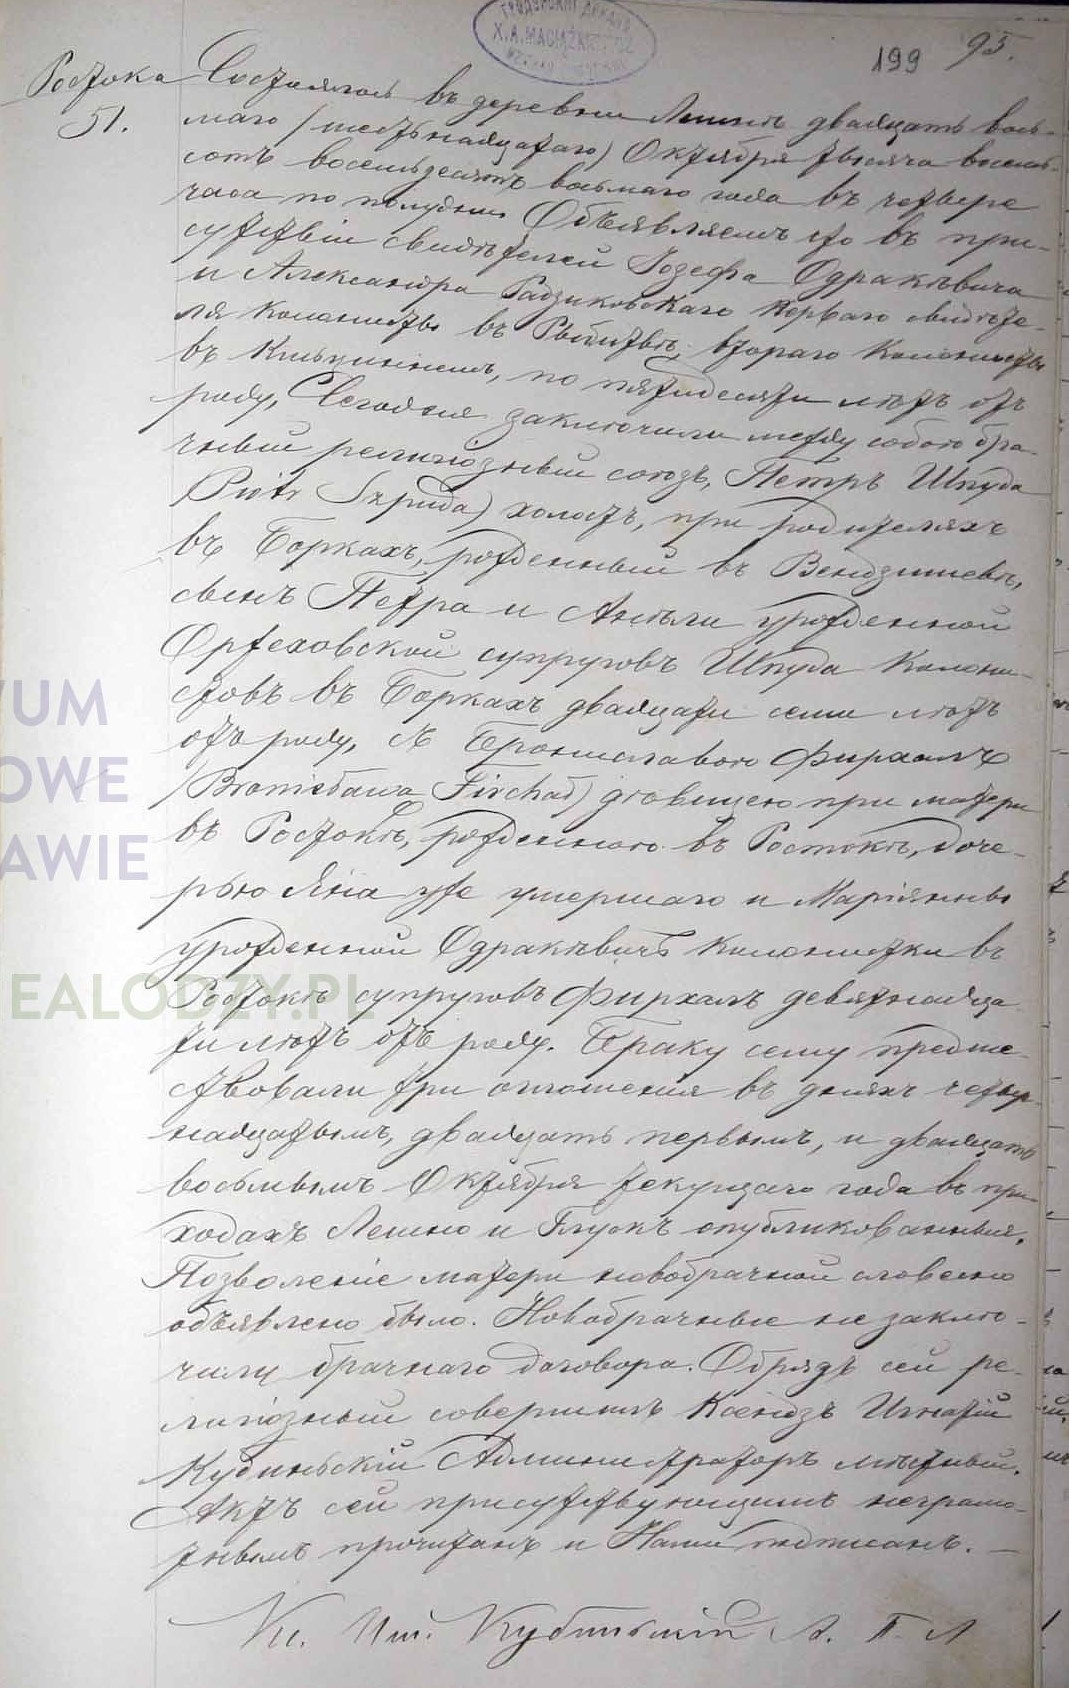 199 95.
Ростока
51.
Состоялось въ деревни Лешнѣ двадцать вось-
маго /шестьнадцатаго) Октября тысяча восемь-
сотъ восемьдесятъ восьмаго года въ четвере
часа по полудни. Объявляемъ что въ при-
сутствіи свидѣтелей Іозефа Одракѣвича
и Александра Радзиковскаго перваго свидѣте-
ля колонисты въ Рыбитвѣ, втораго колонисты
въ, по пятидесяти лѣтъ отъ
роду, Сегодня заключили между собою бра-
чный религіозный союзъ, Петръ Шпуда
/Piotr Szpuda) холостъ, при родителяхъ
въ Боркахъ, рожденный въ Вендзишевѣ,
сынъ Петра и Анѣли урожденной
Оржеховской супруговъ Шпуда Колони-
стовъ въ Боркахъ двадцати семи лѣтъ
отъ роду, съ Брониславою Фирхалъ
/Bronisława Firchał) дѣвицею при матери
въ Ростокѣ, рожденною въ Ростокѣ, доче-
рью Яна уже умершаго и Маріянны
урожденной Одракѣвичъ колонистки въ
Ростокѣ супруговъ Фирхалъ девятнадца-
ти лѣтъ отъ роду. Браку сему предше-
ствовали три оглошенія въ дняхъ четыр-
надцатымъ, двадцать первымъ, и двадцать
восьмымъ Октября текущаго года въ при-
ходахъ Лешно и Глускъ опубликованныя.
Позволеніе матери новобрачной словесно
объявлено было. Новобрачные не заклю-
чили брачнаго договора. Обрядъ сей ре-
лигіозный совершилъ Ксендзъ Игнатій
Кубиньскій Администраторъ мѣстный.
Актъ сей присутствующимъ неграмо-
тнымъ прочитанъ и Нами подписанъ. —
Кс. Игн. Кубиньскій А. П. Л
X.A.
WUM
OWE
AWIE
EALODZY.PL